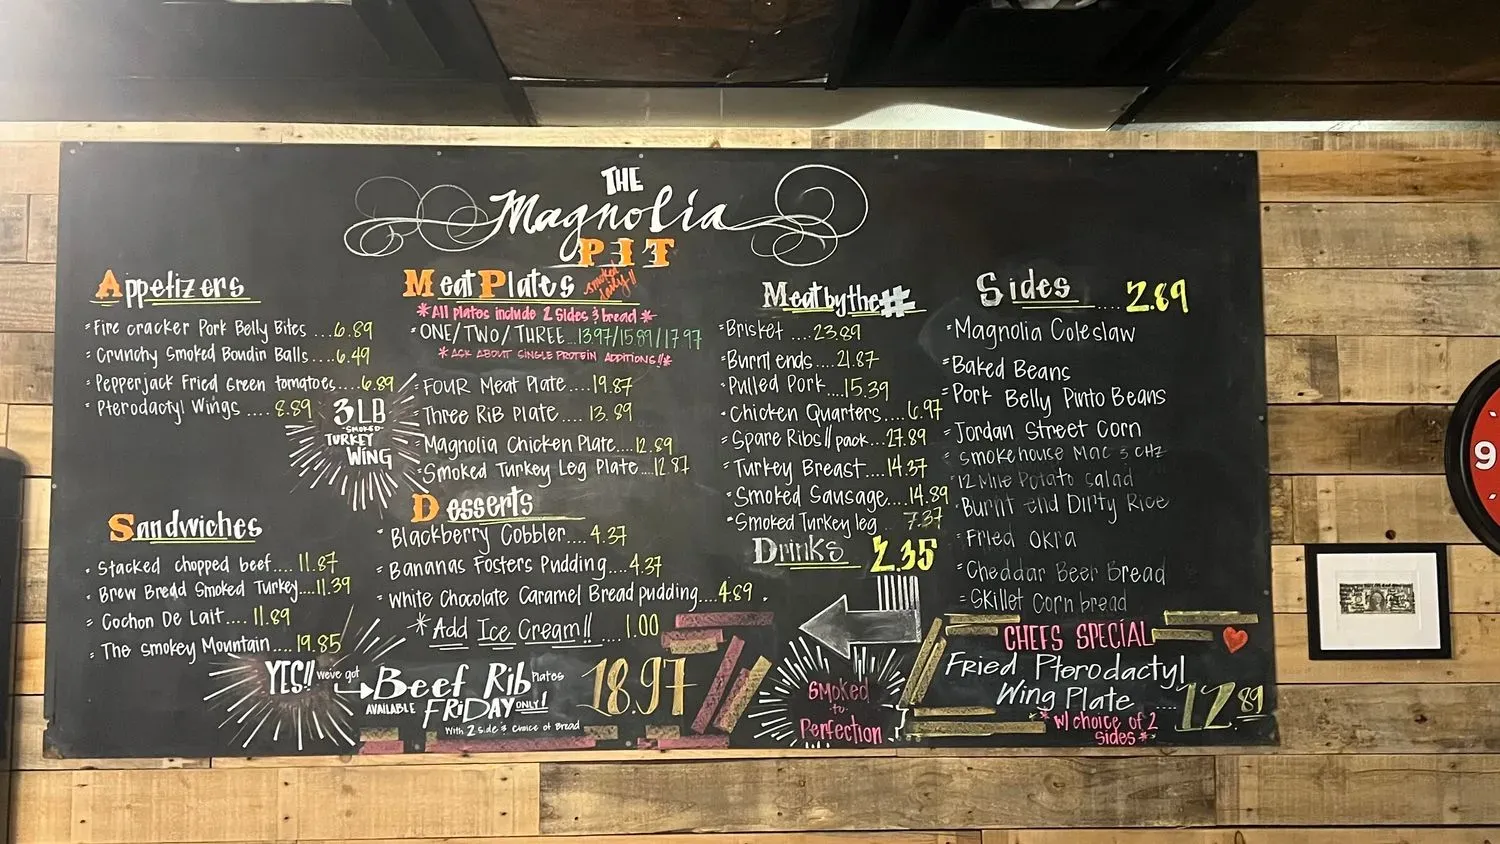 THE
Magnolia
PIT
Appetizers
Fire cracker Pork Belly Bites ...6.89
Crunchy Smoked Boudin Balls....6.49
Pepperjack Fried Green tomatoes....6.89
Pterodactyl Wings .... 8.89
3 LB
SMOKED
TURKEY
WING
Sandwiches
Stacked chopped beef.... 11.87
Brew Bread Smoked Turkey....11.39
Cochon De Lait.... 11.89
The Smokey Mountain...19.85
Meat Plates smoked daily!!
*All plates include 2 Sides & bread*
ONE/TWO/THREE...13.97/15.89/17.97
*ASK ABOUT SINGLE PROTEIN ADDITIONS!!*
FOUR Meat Plate....19.87
Three Rib Plate.... 13.89
Magnolia Chicken Plate....12.89
Smoked Turkey Leg Plate...12.87
Desserts
Blackberry Cobbler.... 4.37
Bananas Fosters Pudding....4.37
White Chocolate Caramel Bread pudding....4.89
*Add Ice Cream!! ....1.00
YES!! we've got
Beef Rib Plates
AVAILABLE FRIDAY ONLY!
With 2 side's choice of Bread
18.97
Meat by the #
Brisket ....23.89
Burnt ends....21.87
Pulled Pork...15.39
Chicken Quarters....6.97
Spare Ribs// pack...27.89
Turkey Breast....14.37
Smoked Sausage....14.89
Smoked Turkey leg .. 7.37
Drinks 2.35
Smoked
to
Perfection
Sides .... 2.89
Magnolia Coleslaw
Baked Beans
Pork Belly Pinto Beans
Jordan Street Corn
Smokehouse Mac & CHZ
12 Mile Potato Salad
Burnt end Dirty Rice
Fried Okra
Cheddar Beer Bread
Skillet Cornbread
CHEFS SPECIAL
Fried Pterodactyl
Wing Plate .... 12.89
*w/ choice of 2
sides*
9